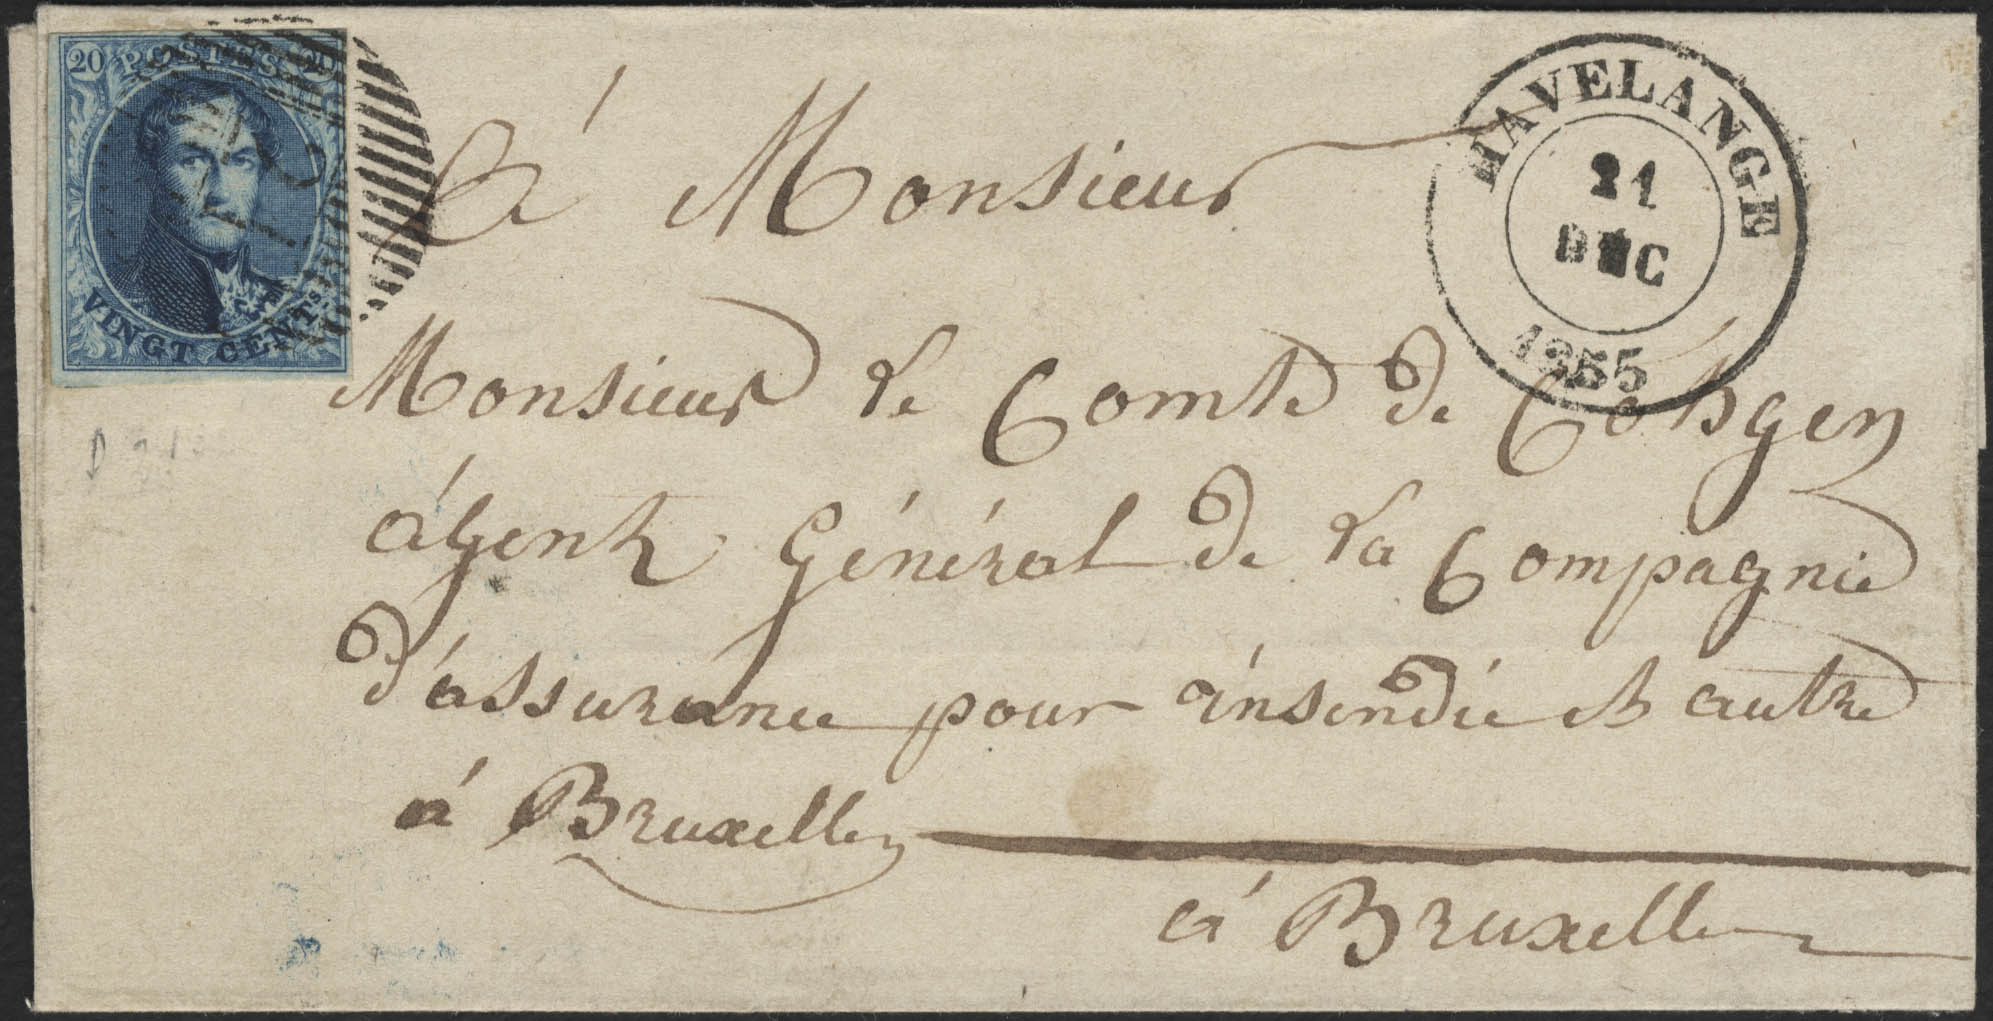 20 POSTES 20
VINGT CENTS.
HAVELANGE
21
DEC
1855
à Monsieur
Monsieur le Comte de Cóhgen
àgent Général de la Compagnie
d'àssuránce pour insendié et autre
à Bruxelles
à Bruxelles